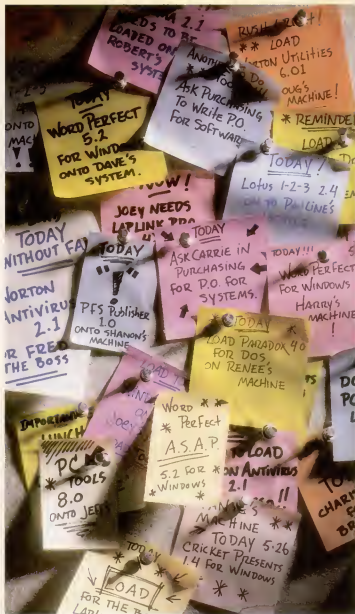 2.1
NEEDS TO BE
LOADED ON
ROBERT'S
SYSTEM
RUSH
** LOAD
NORTON UTILITIES
6.01
DOUG'S
MACHINE!
ANOTHER TO DO
TODAY
ASK PURCHASING
TO WRITE P.O.
FOR SOFTWARE
1-2-3
ONTO
!
TODAY
WORD PERFECT
5.2
FOR WINDOWS
ONTO DAVE'S
SYSTEM.
* REMINDER
LOAD
TODAY!
LOTUS 1-2-3 2.4
ON TO PAULINE'S
NOW!
JOEY NEEDS
LAPLINK PRO
TODAY
WITHOUT FAIL
NORTON
ANTIVIRUS
2.1
FOR FRED
THE BOSS
TODAY
"!"
PFS PUBLISHER
1.0
ONTO SHANON'S
MACHINE
TODAY
ASK CARRIE IN
PURCHASING
FOR P.O. FOR
SYSTEMS.
TODAY!!!
WORD PERFECT
FOR WINDOWS
HARRY'S
MACHINE
!
TODAY
LOAD PARADOX 4.0
FOR DOS,
ON RENEE'S
MACHINE
IMPORTANT
LUNCH
LOAD
JOEY
WORD
* PERFECT *
A.S.A.P
5.2 FOR
* WINDOWS *
PC
TOOLS
8.0
ONTO JEFF'S
TO LOAD
NORTON ANTIVIRUS
2.1
!!
MACHINE **
TODAY 5-26
CRICKET PRESENTS
1.4 FOR WINDOWS
* *
DO
PC
L
TO
CHAR
F
B
TODAY
LOAD
FOR THE B